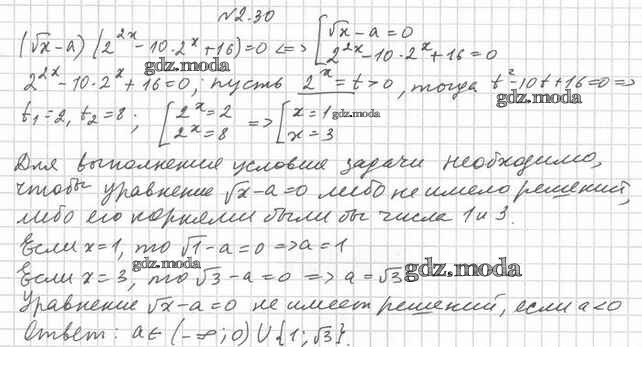 №2.30
(√x-a)(2^{2x}-10·2^x+16)=0 <=> [√x-a=0
2^{2x}-10·2^x+16=0
gdz.moda
2^{2x}-10·2^x+16=0; пусть 2^x=t>0, тогда t^2-10t+16=0 =>
gdz.moda
t₁=2, t₂=8; [2^x=2 => [x=1
gdz.moda
2^x=8 x=3
Для выполнения условия задачи необходимо,
чтобы уравнение √x-a=0 либо не имело решений,
либо его корнями были бы числа 1 и 3.
Если x=1, то √1-a=0 => a=1
gdz.moda
Если x=3, то √3-a=0 => a=√3
gdz.moda
Уравнение √x-a=0 не имеет решений, если a<0
Ответ: a∈(-∞;0)∪{1;√3}.